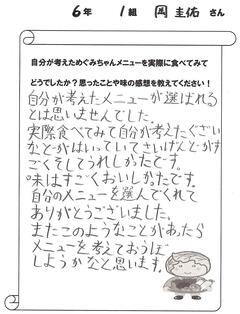 6年 1組 岡 圭佑 さん
自分が考えためぐみちゃんメニューを実際に食べてみて
どうでしたか？思ったことや味の感想を教えてください！
自分が考えたメニューが選ばれる
とは思いませんでした。
実際食べてみて自分が考えたぐざい
などがはいっていてさいげんどがす
ごくそしてうれしかったです。
味はすごくおいしかったです。
自分のメニューを選んでくれて
ありがとうございました。
またこのようなことがあったら
メニューを考えておうぼ
しようかなと思います。